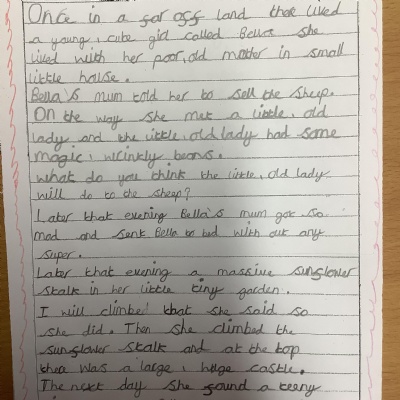 Once in a far off land ther lived
a young, cute girl called Bella she
lived with her poor, old mother in small
little house.
Bella's mum told her to sell the sheep.
On the way she met a little, old
lady and the little, old lady had some
magic, wrinkly beans.
what do you think the little, old lady
will do to the sheep?
Later that evening Bella's mum got so
mad and sent Bella to bed with out any
super.
Later that evening a massive sunflower
stalk in her little tiny garden.
I will climbed that she said so
she did. Then she climbed the
sunflower stalk and at the top
thea was a large, huge castle.
The next day she found a teeny